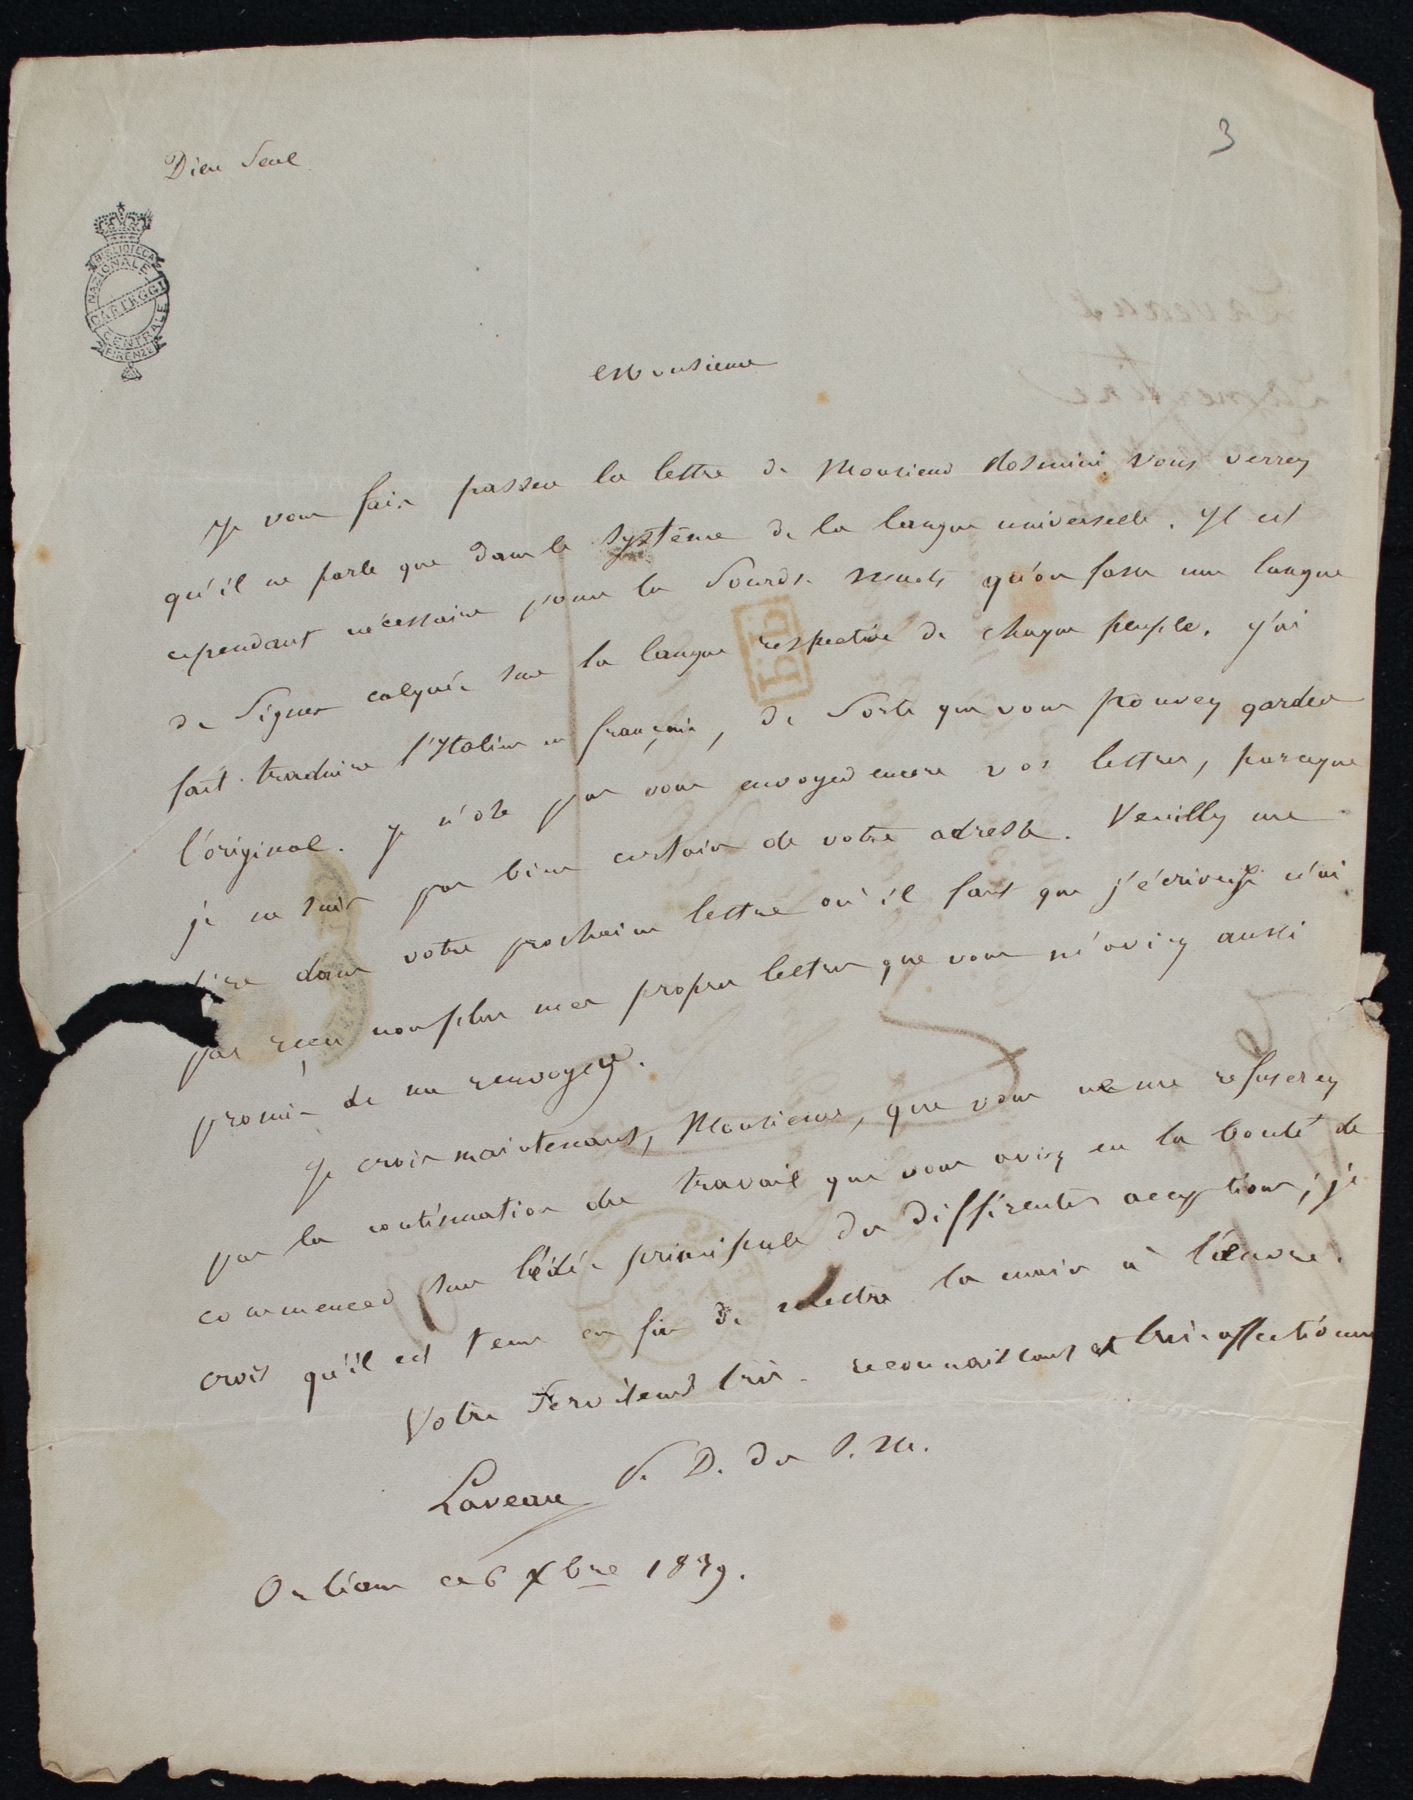 3
Dieu Seul
BIBLIOTECA
NAZIONALE
CARTEGGI
CENTRALE
FIRENZE
Monsieur
Je vous fais passer la lettre de Monsieur Rosmini vous verrez
qu'il ne parle que dans le système de la langue universelle. Il est
cependant nécessaire pour les Sourds-Muets qu'on fasse une langue
de Signes calquée sur la langue respective de chaque peuple. J'ai
fait traduire l'Italien en français, de sorte que vous pouvez garder
l'original. Je n'ose pas vous envoyer encore vos lettres, parceque
je ne suis pas bien certain de votre adresse. Veuillez me
dire dans votre prochaine lettre où il faut que j'écrive je n'ai
pas reçu non plus mes propres lettres que vous m'aviez aussi
promis de me renvoyer.
Je crois maintenant, Monsieur, que vous ne me refuserez
pas la continuation du travail que vous aviez eu la bonté de
commencer sur l'idée principale des différentes acceptions; je
crois qu'il est tems en fin de mettre la main à l'œuvre.
Votre Serviteur très-reconnaissant et très-affectionné
Laveau P. D. des S. M.
Orléans ce 6 Xbre 1839.